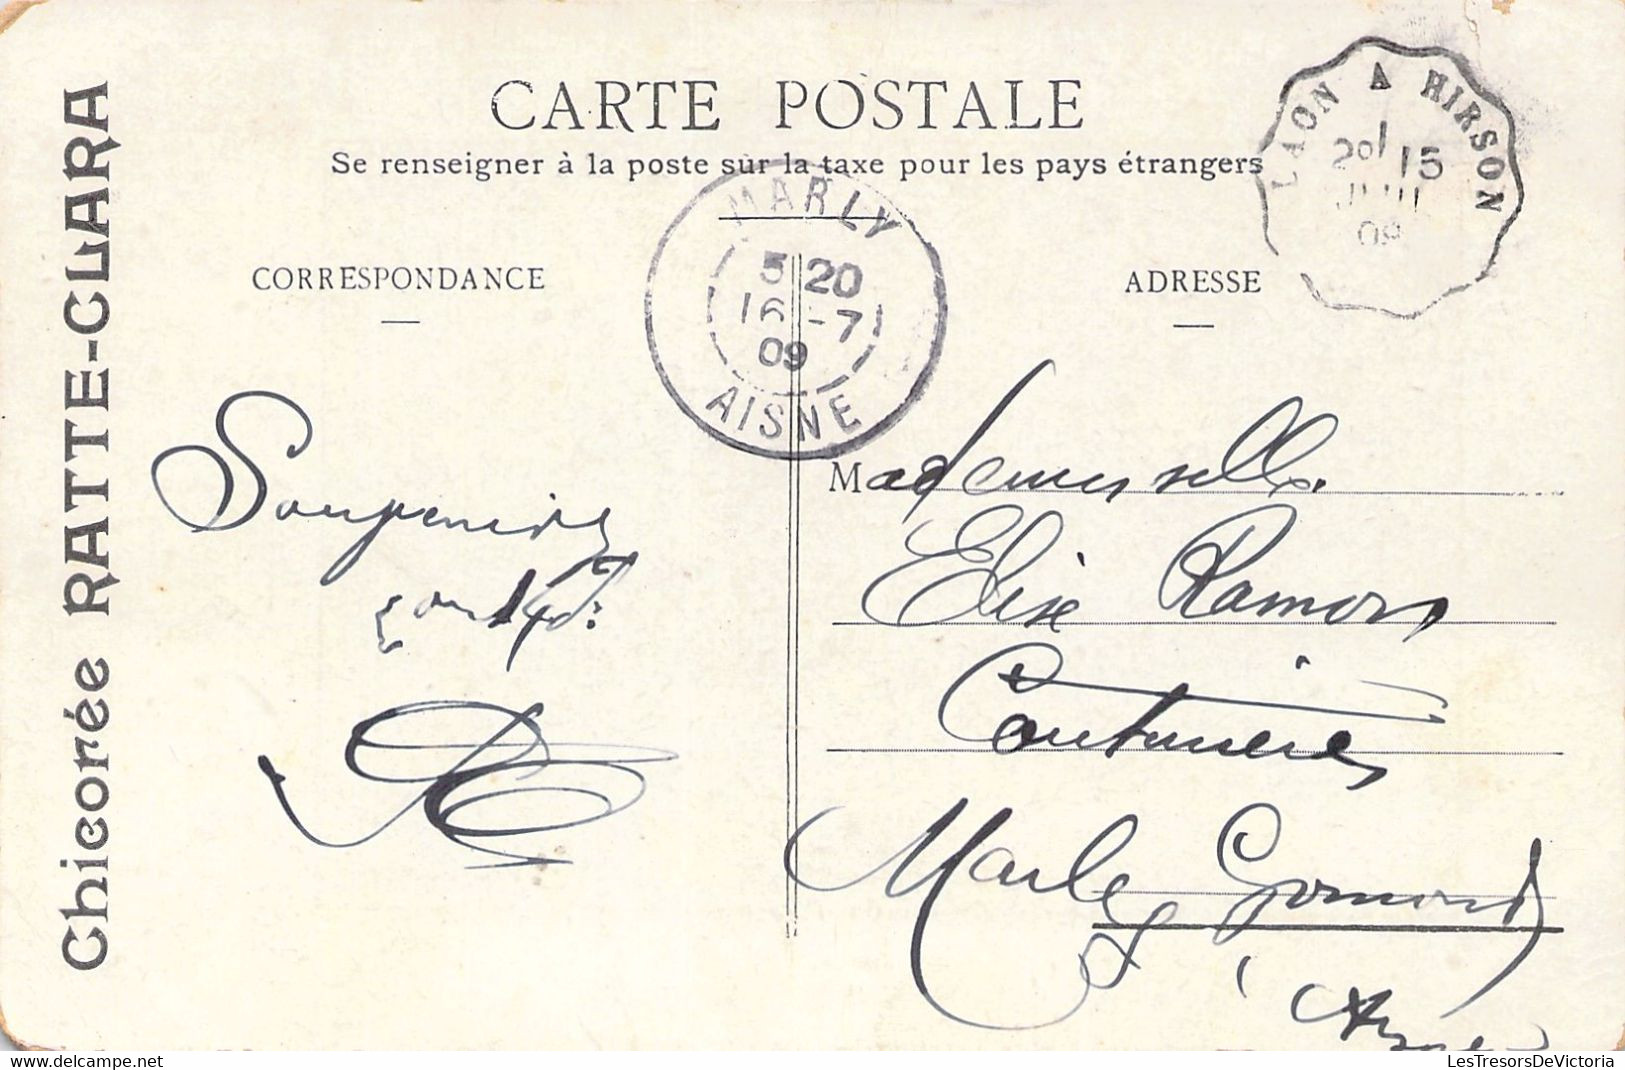 CARTE POSTALE
Se renseigner à la poste sur la taxe pour les pays étrangers
LAON A HIRSON
15
09
MARLY
5 20
16 -7
09
AISNE
CORRESPONDANCE
ADRESSE
Chicorée RATTE-CLARA
Souvenirs
Mademoiselle
Elise Ramon
Couturière
Marly Gomont
(Aisne
LesTresorsDeVictoria